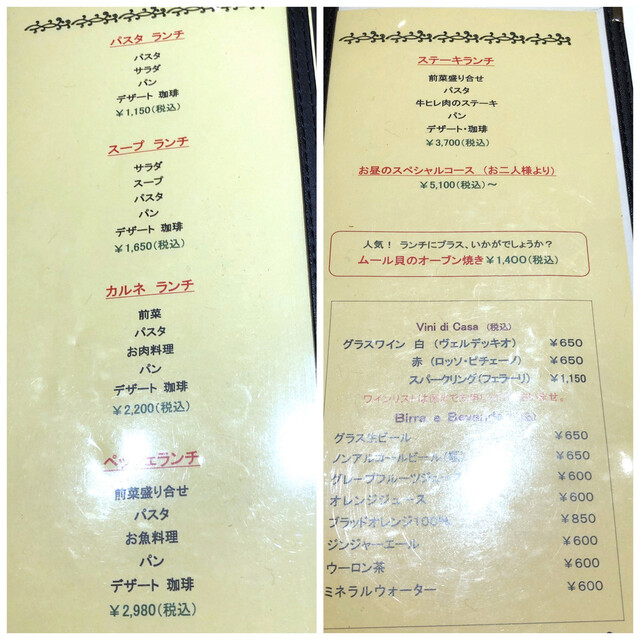 パスタ ランチ
パスタ
サラダ
パン
デザート 珈琲
￥1,150(税込)
スープ ランチ
サラダ
スープ
パスタ
パン
デザート 珈琲
￥1,650(税込)
カルネ ランチ
前菜
パスタ
お肉料理
パン
デザート 珈琲
￥2,200(税込)
ペッシェランチ
前菜盛り合せ
パスタ
お魚料理
パン
デザート 珈琲
￥2,980(税込)
ステーキランチ
前菜盛り合せ
パスタ
牛ヒレ肉のステーキ
パン
デザート・珈琲
￥3,700(税込)
お昼のスペシャルコース (お二人様より)
￥5,100(税込)～
人気！ ランチにプラス、いかがでしょうか？
ムール貝のオーブン焼き￥1,400(税込)
Vini di Casa (税込)
グラスワイン 白 (ヴェルデッキオ) ￥650
赤 (ロッソ・ピチェーノ) ￥650
スパークリング(フェラーリ) ￥1,150
ワインリストは
Birra e Bevande
グラス生ビール ￥650
ノンアルコールビール ￥650
グレープフルーツジュース ￥600
オレンジジュース ￥600
ブラッドオレンジ100% ￥850
ジンジャーエール ￥600
ウーロン茶 ￥600
ミネラルウォーター ￥600